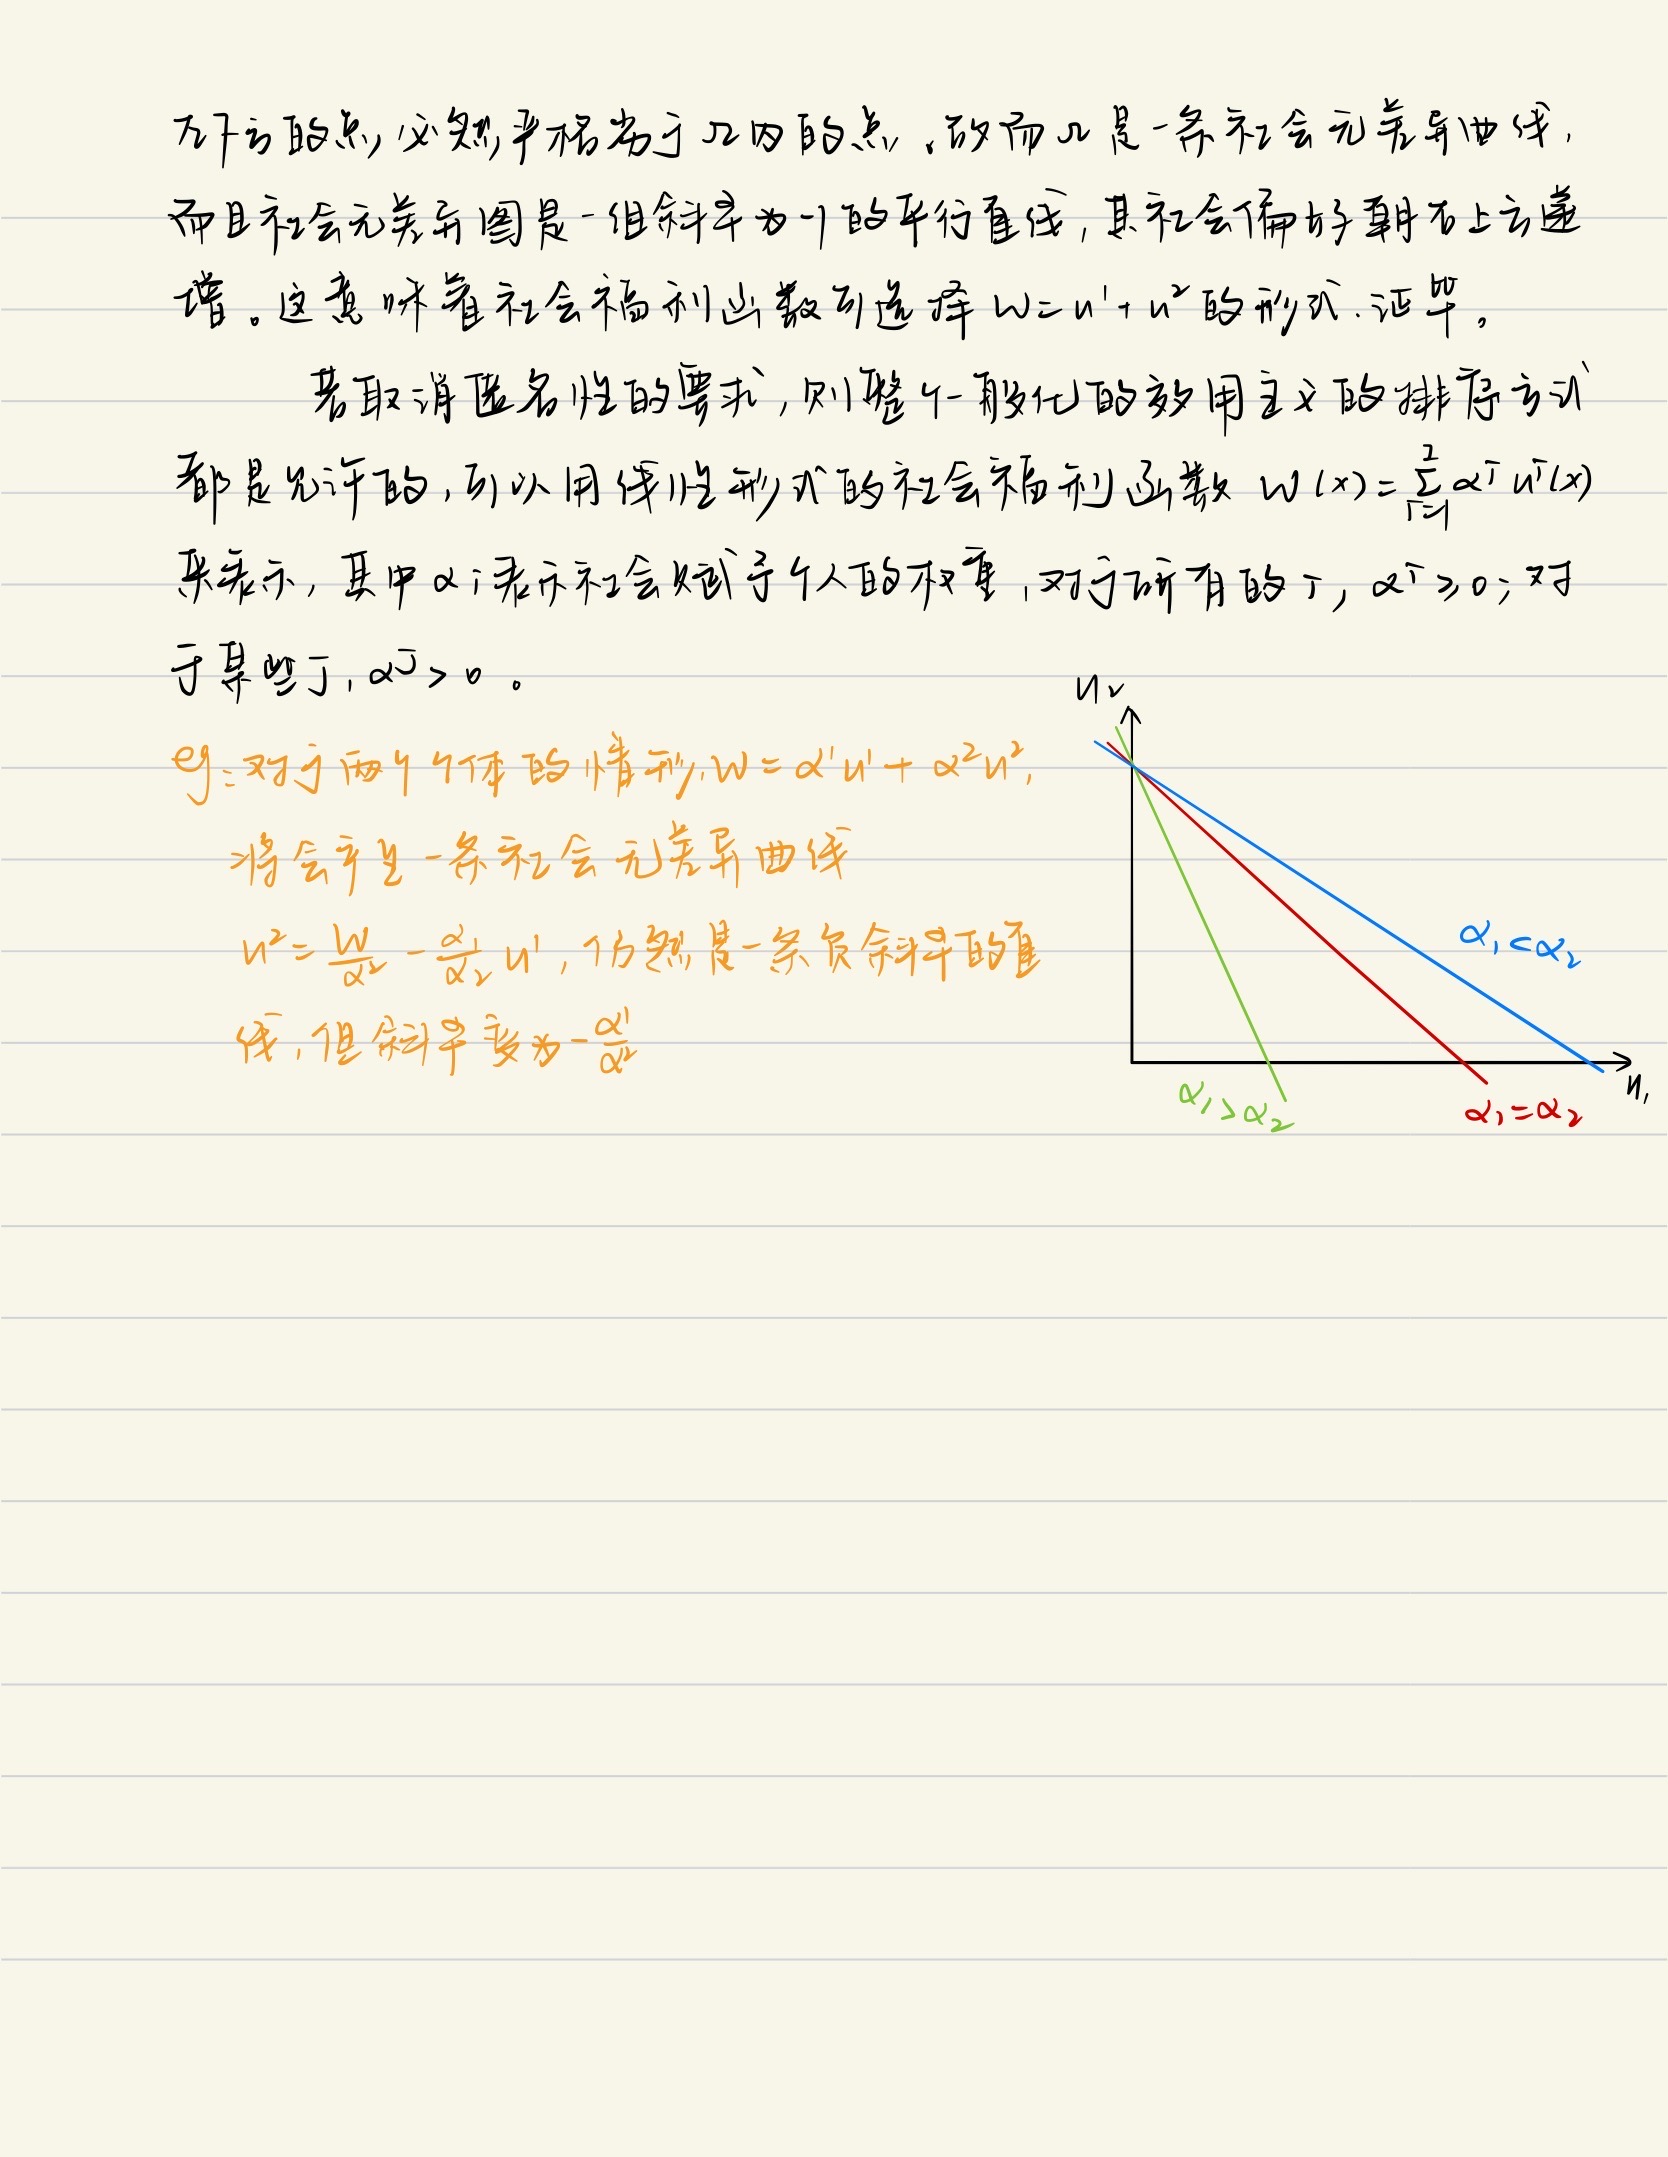 左下方的点,必然严格劣于Ω内的点.故而Ω是一条社会无差异曲线,
而且社会无差异图是一组斜率为-1的平行直线,其社会偏好朝右上方递
增。这意味着社会福利函数可选择 W=u¹+u² 的形式.证毕。
若取消匿名性的要求,则整个一般化的效用主义的排序方式
都是允许的,可以用线性形式的社会福利函数 W(x)=∑_{i=1}^{2} αⁱuⁱ(x)
来表示,其中αi表示社会赋予个人的权重,对于所有的i,αⁱ≥0;对
于某些j,αʲ>0。
eg:对于两个个体的情形,W=α¹u¹+α²u²,
将会产生一条社会无差异曲线
u²=W/α²-α¹/α₂u¹,仍然是一条负斜率的直
线,但斜率变为-α¹/α²
u₂
α₁<α₂
u₁
α₁>α₂
α₁=α₂